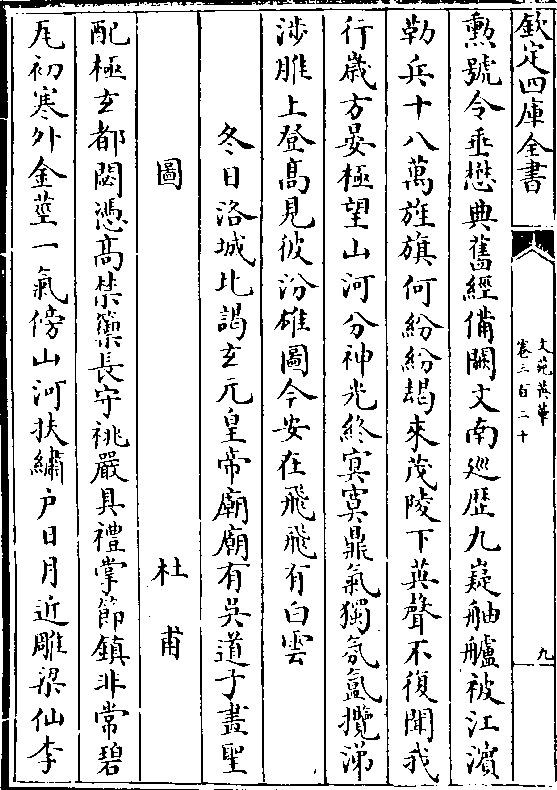 欽定四庫全書
文苑英華
卷三百二十
九
勲號令垂懋典舊經備闕文南廵歴九嶷舳艫被江濆
勒兵十八萬旌旗何紛紛朅來茂陵下英聲不復聞我
行嵗方晏極望山河分神光終㝠㝠鼎氣獨氛氲攬涕
涉脽上登髙見彼汾雄圖今安在飛飛有白雲
冬日洛城北謁𤣥元皇帝廟廟有吳道子畫聖
圖
杜甫
配極𤣥都閟憑髙禁籞長守祧嚴具禮掌節鎮非常碧
瓦初寒外金莖一氣傍山河扶繡户日月近雕梁仙李